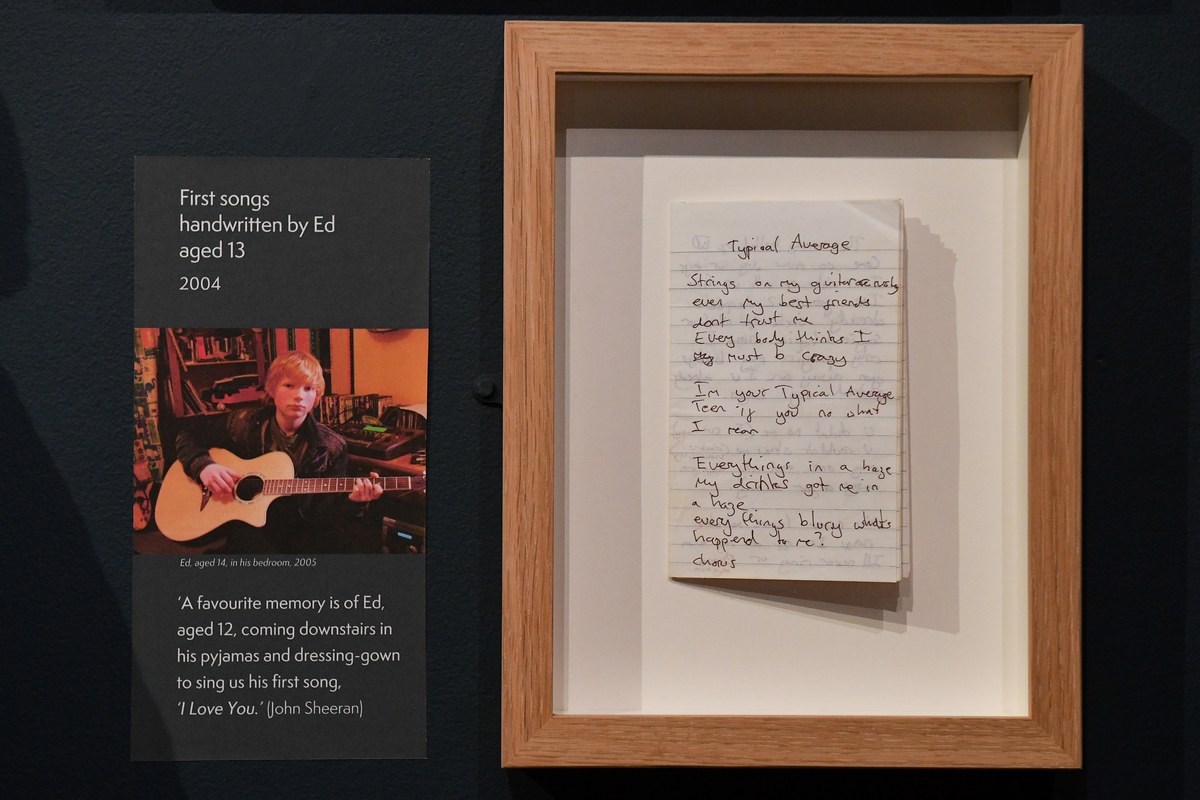 First songs
handwritten by Ed
aged 13
2004
Ed, aged 14, in his bedroom, 2005
‘A favourite memory is of Ed,
aged 12, coming downstairs in
his pyjamas and dressing-gown
to sing us his first song,
‘I Love You.’ (John Sheeran)
Typical Average
Strings on my guitar are rusty
even my best friends
dont trust me
Every body thinks I
must b crazy
Im your Typical Average
Teen if you no what
I mean
Everythings in a haze
My drinks got me in
a haze
every things blury whats
happend to me?
chorus